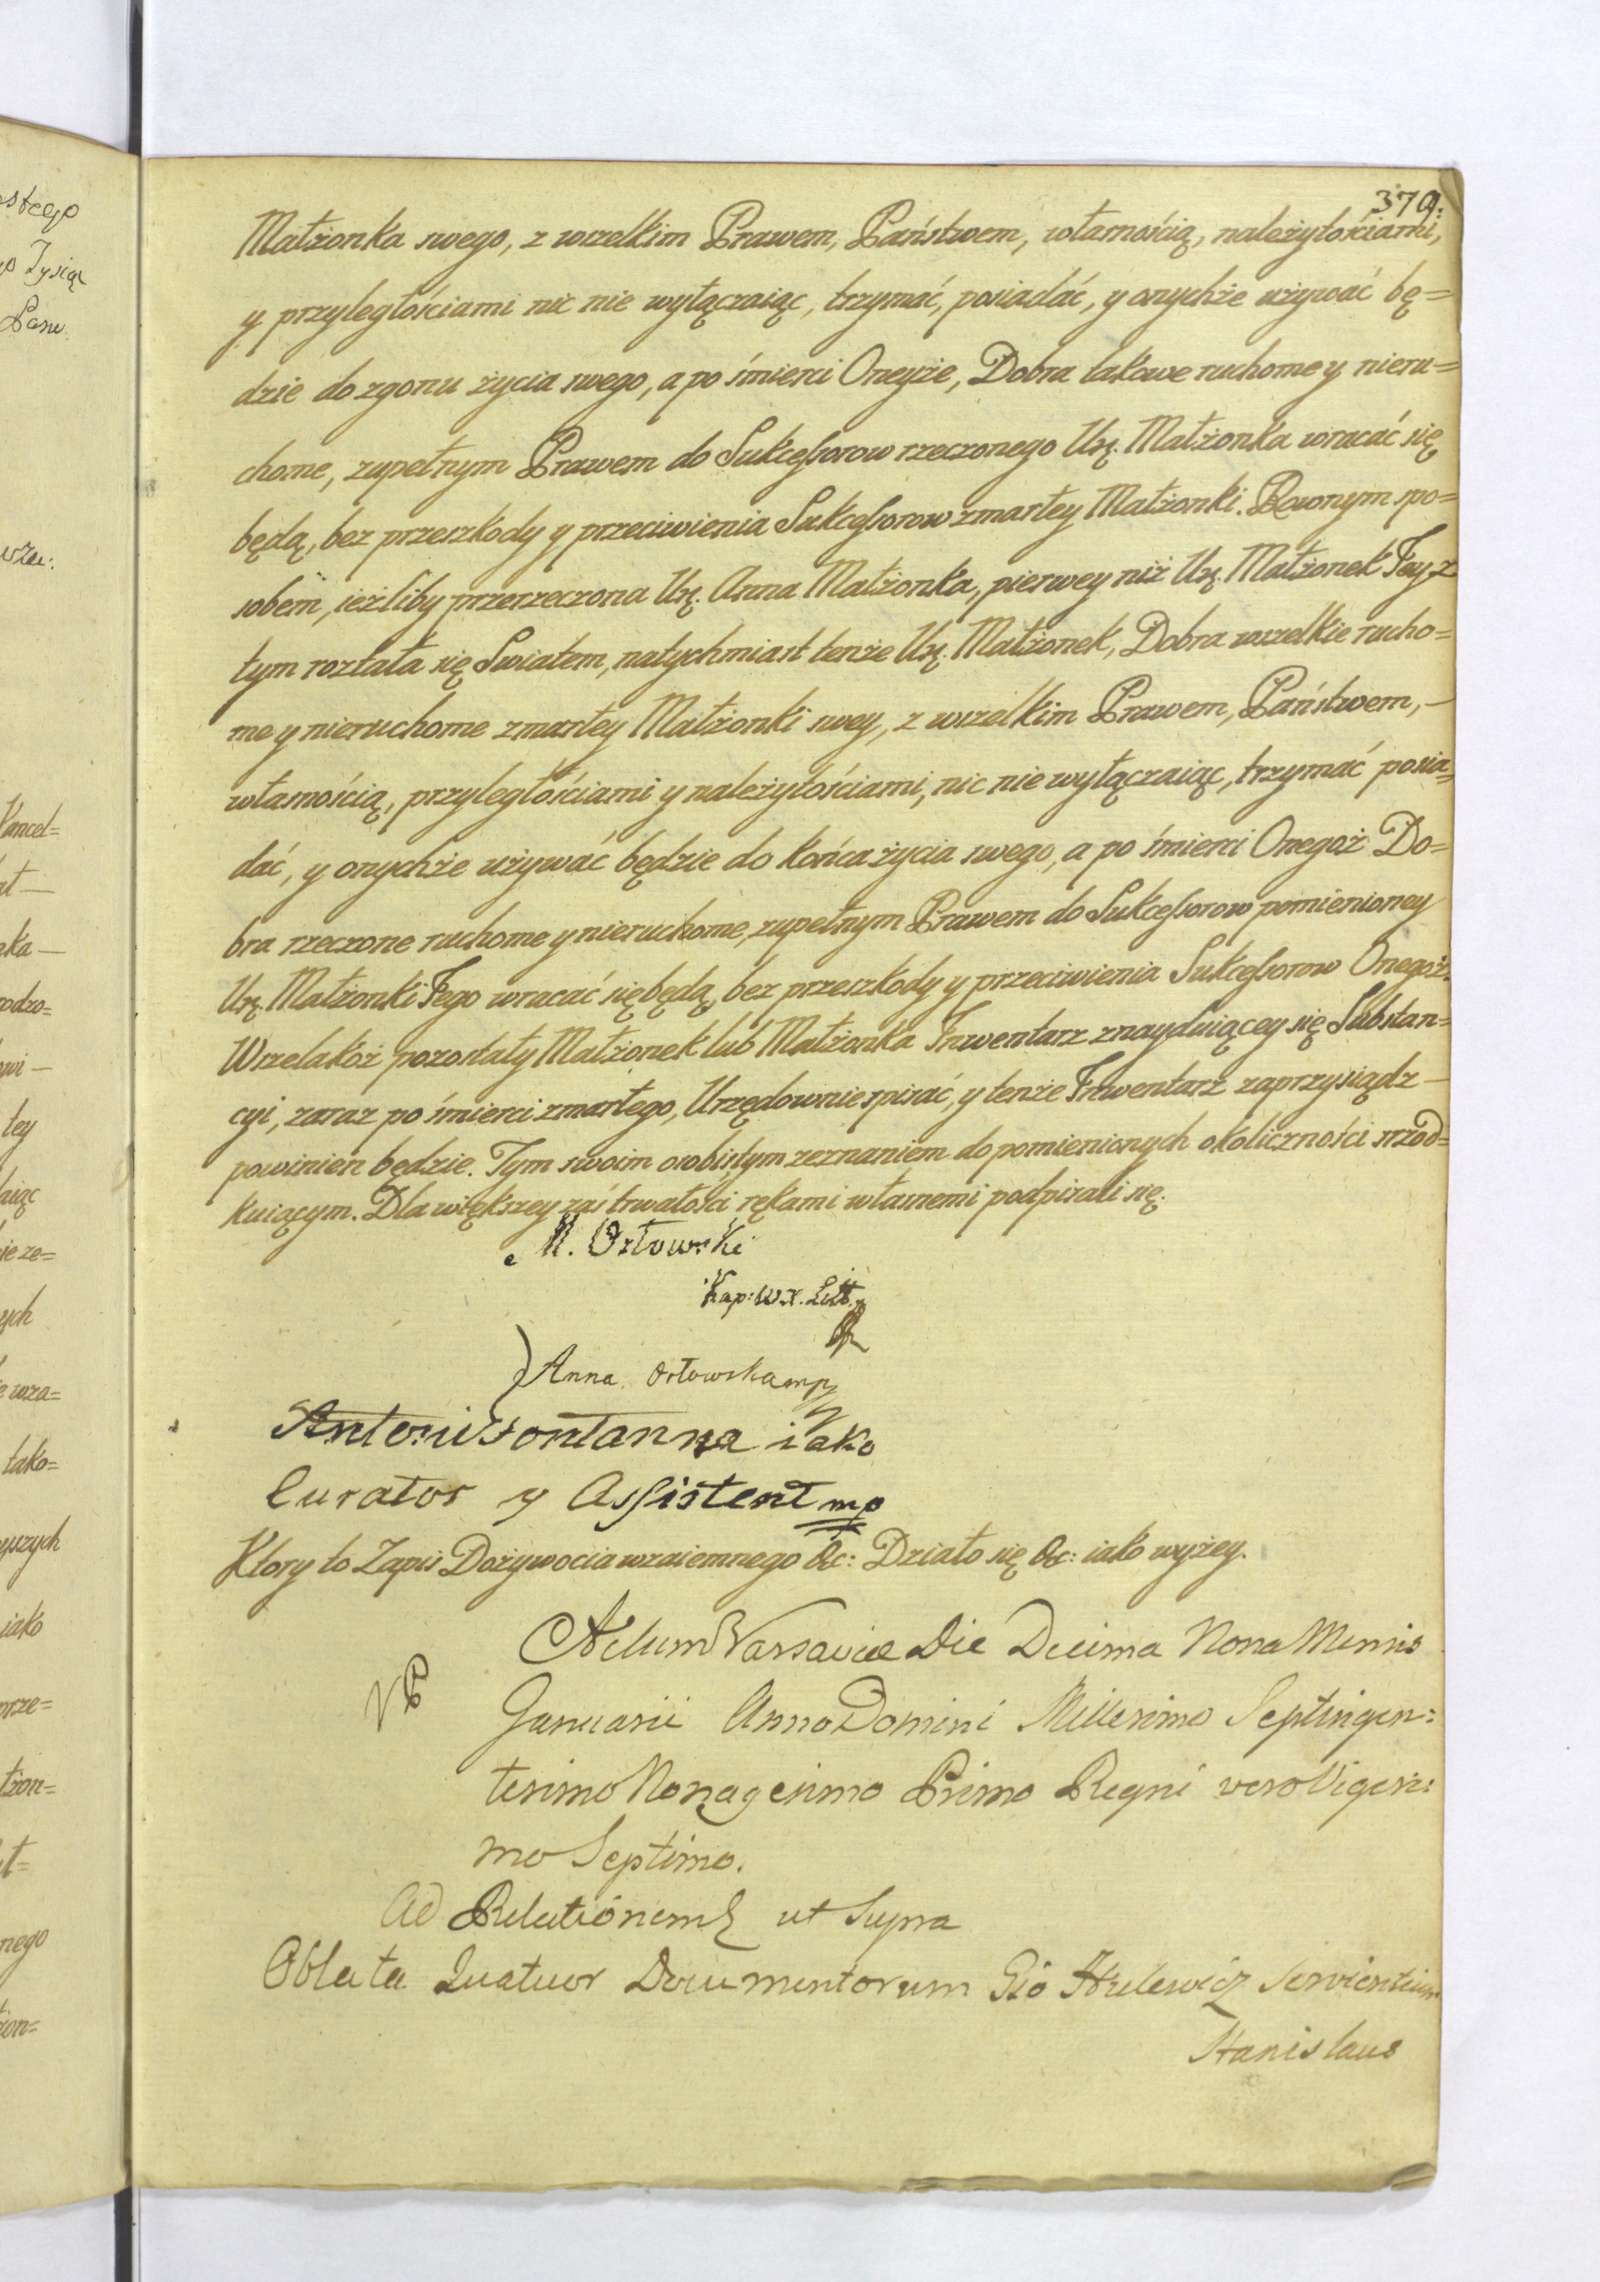 379.
Małżonka swego, z wszelkim Prawem, Państwem, własnością, należytościami,
y przyległościami nic nie wyłączaiąc, trzymać, posiadać, y onychże używać bę=
dzie do zgonu życia swego, a po śmierci Oneyże, Dobra takowe ruchome y nieru=
chome, zupełnym Prawem do Sukcessorow rzeczonego Ur. Małżonka wracać się
będą, bez przeszkody y przeciwienia Sukcessorow zmarłey Małżonki. Rownym spo=
sobem, ieżliby przerzeczona Ur. Anna Małżonka, pierwey niż Ur. Małżonek Jey z
tym rozstała się Swiatem, natychmiast tenże Ur. Małżonek, Dobra wszelkie rucho=
me y nieruchome zmarłey Małżonki swey, z wszelkim Prawem, Państwem, —
własnością, przyległościami y należytościami, nic nie wyłączaiąc, trzymać posia=
dać, y onychże używać będzie do końca życia swego, a po śmierci Onegoż Do=
bra rzeczone ruchome y nieruchome, zupełnym Prawem do Sukcessorow pomienioney
Ur. Małżonki Jego wracać się będą, bez przeszkody y przeciwienia Sukcessorow Onegoż.
Wszelakoż pozostały Małżonek lub Małżonka Inwentarz znayduiącey się Substan=
cyi, zaraz po śmierci zmarłego, Urzędownie spisać, y tenże Inwentarz zaprzysiądz —
powinien będzie. Tym swoim osobistym zeznaniem do pomienionych okoliczności srzod=
kuiącym. Dla większey zaś trwałości rękami własnemi podpisali się.
M. Orłowski
Kap: W.X. Litt.
Anna Orłowska mp
Antoni Fontanna iako
Curator y Assistent mp
Ktory to Zapis Dożywocia wzaiemnego &c: Działo się &c: iako wyżey.
Actum Varsaviae Die Decima Nona Mensis
Januarii Anno Domini Millesimo Septingen:
tesimo Nonagesimo Primo Regni vero Vigesi:
mo Septimo.
Ad Relationem ut Supra
Oblata Quatuor Documentorum Gło Hulewicz Servientium
Stanislaus